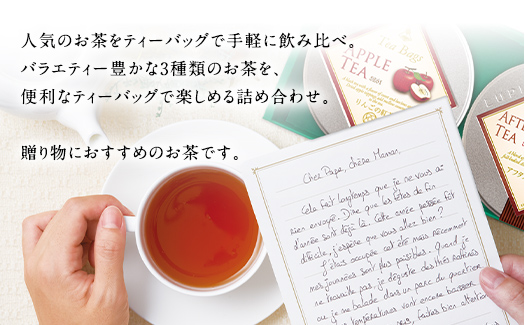 人気のお茶をティーバッグで手軽に飲み比べ。
バラエティー豊かな3種類のお茶を、
便利なティーバッグで楽しめる詰め合わせ。
贈り物におすすめのお茶です。
Tea Bags
APPLE
TEA
りんごの紅茶
LUPI
AFTE
TEA
アフタ
Cher Papa, chère Maman,
Cela fait longtemps que je ne vous ai
rien envoyé. Dire que les fêtes de fin
d'année sont déjà là. Cette année passée fût
difficile, j'espère que vous allez bien?
J'étais occupée cet été mais récemment
mes journées sont plus paisibles. Quand je
ne travaille pas, je déguste des thés
ou je me balade dans un parc du quartier
températures vont encore baisser
faites bien attention